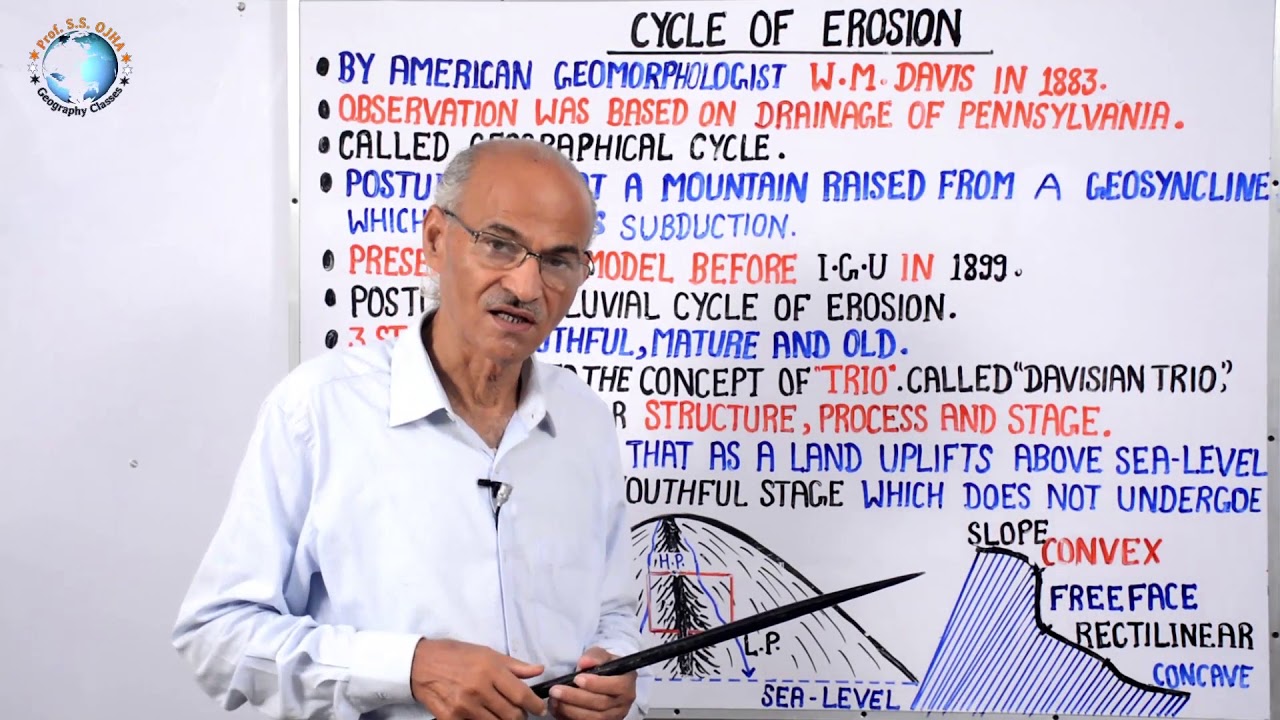 Prof. S.S. OJHA
Geography Classes
CYCLE OF EROSION
• BY AMERICAN GEOMORPHOLOGIST W.M. DAVIS IN 1883.
• OBSERVATION WAS BASED ON DRAINAGE OF PENNSYLVANIA.
• CALLED GEOGRAPHICAL CYCLE.
• A MOUNTAIN RAISED FROM A GEOSYNCLINE
WHICH SUBDUCTION.
• MODEL BEFORE I.G.U IN 1899.
• CYCLE OF EROSION.
• 3 MATURE AND OLD.
THE CONCEPT OF "TRIO". CALLED "DAVISIAN TRIO,"
STRUCTURE, PROCESS AND STAGE.
THAT AS A LAND UPLIFTS ABOVE SEA-LEVEL
YOUTHFUL STAGE WHICH DOES NOT UNDERGOE
SLOPE
CONVEX
H.P.
FREEFACE
RECTILINEAR
L.P.
CONCAVE
SEA-LEVEL